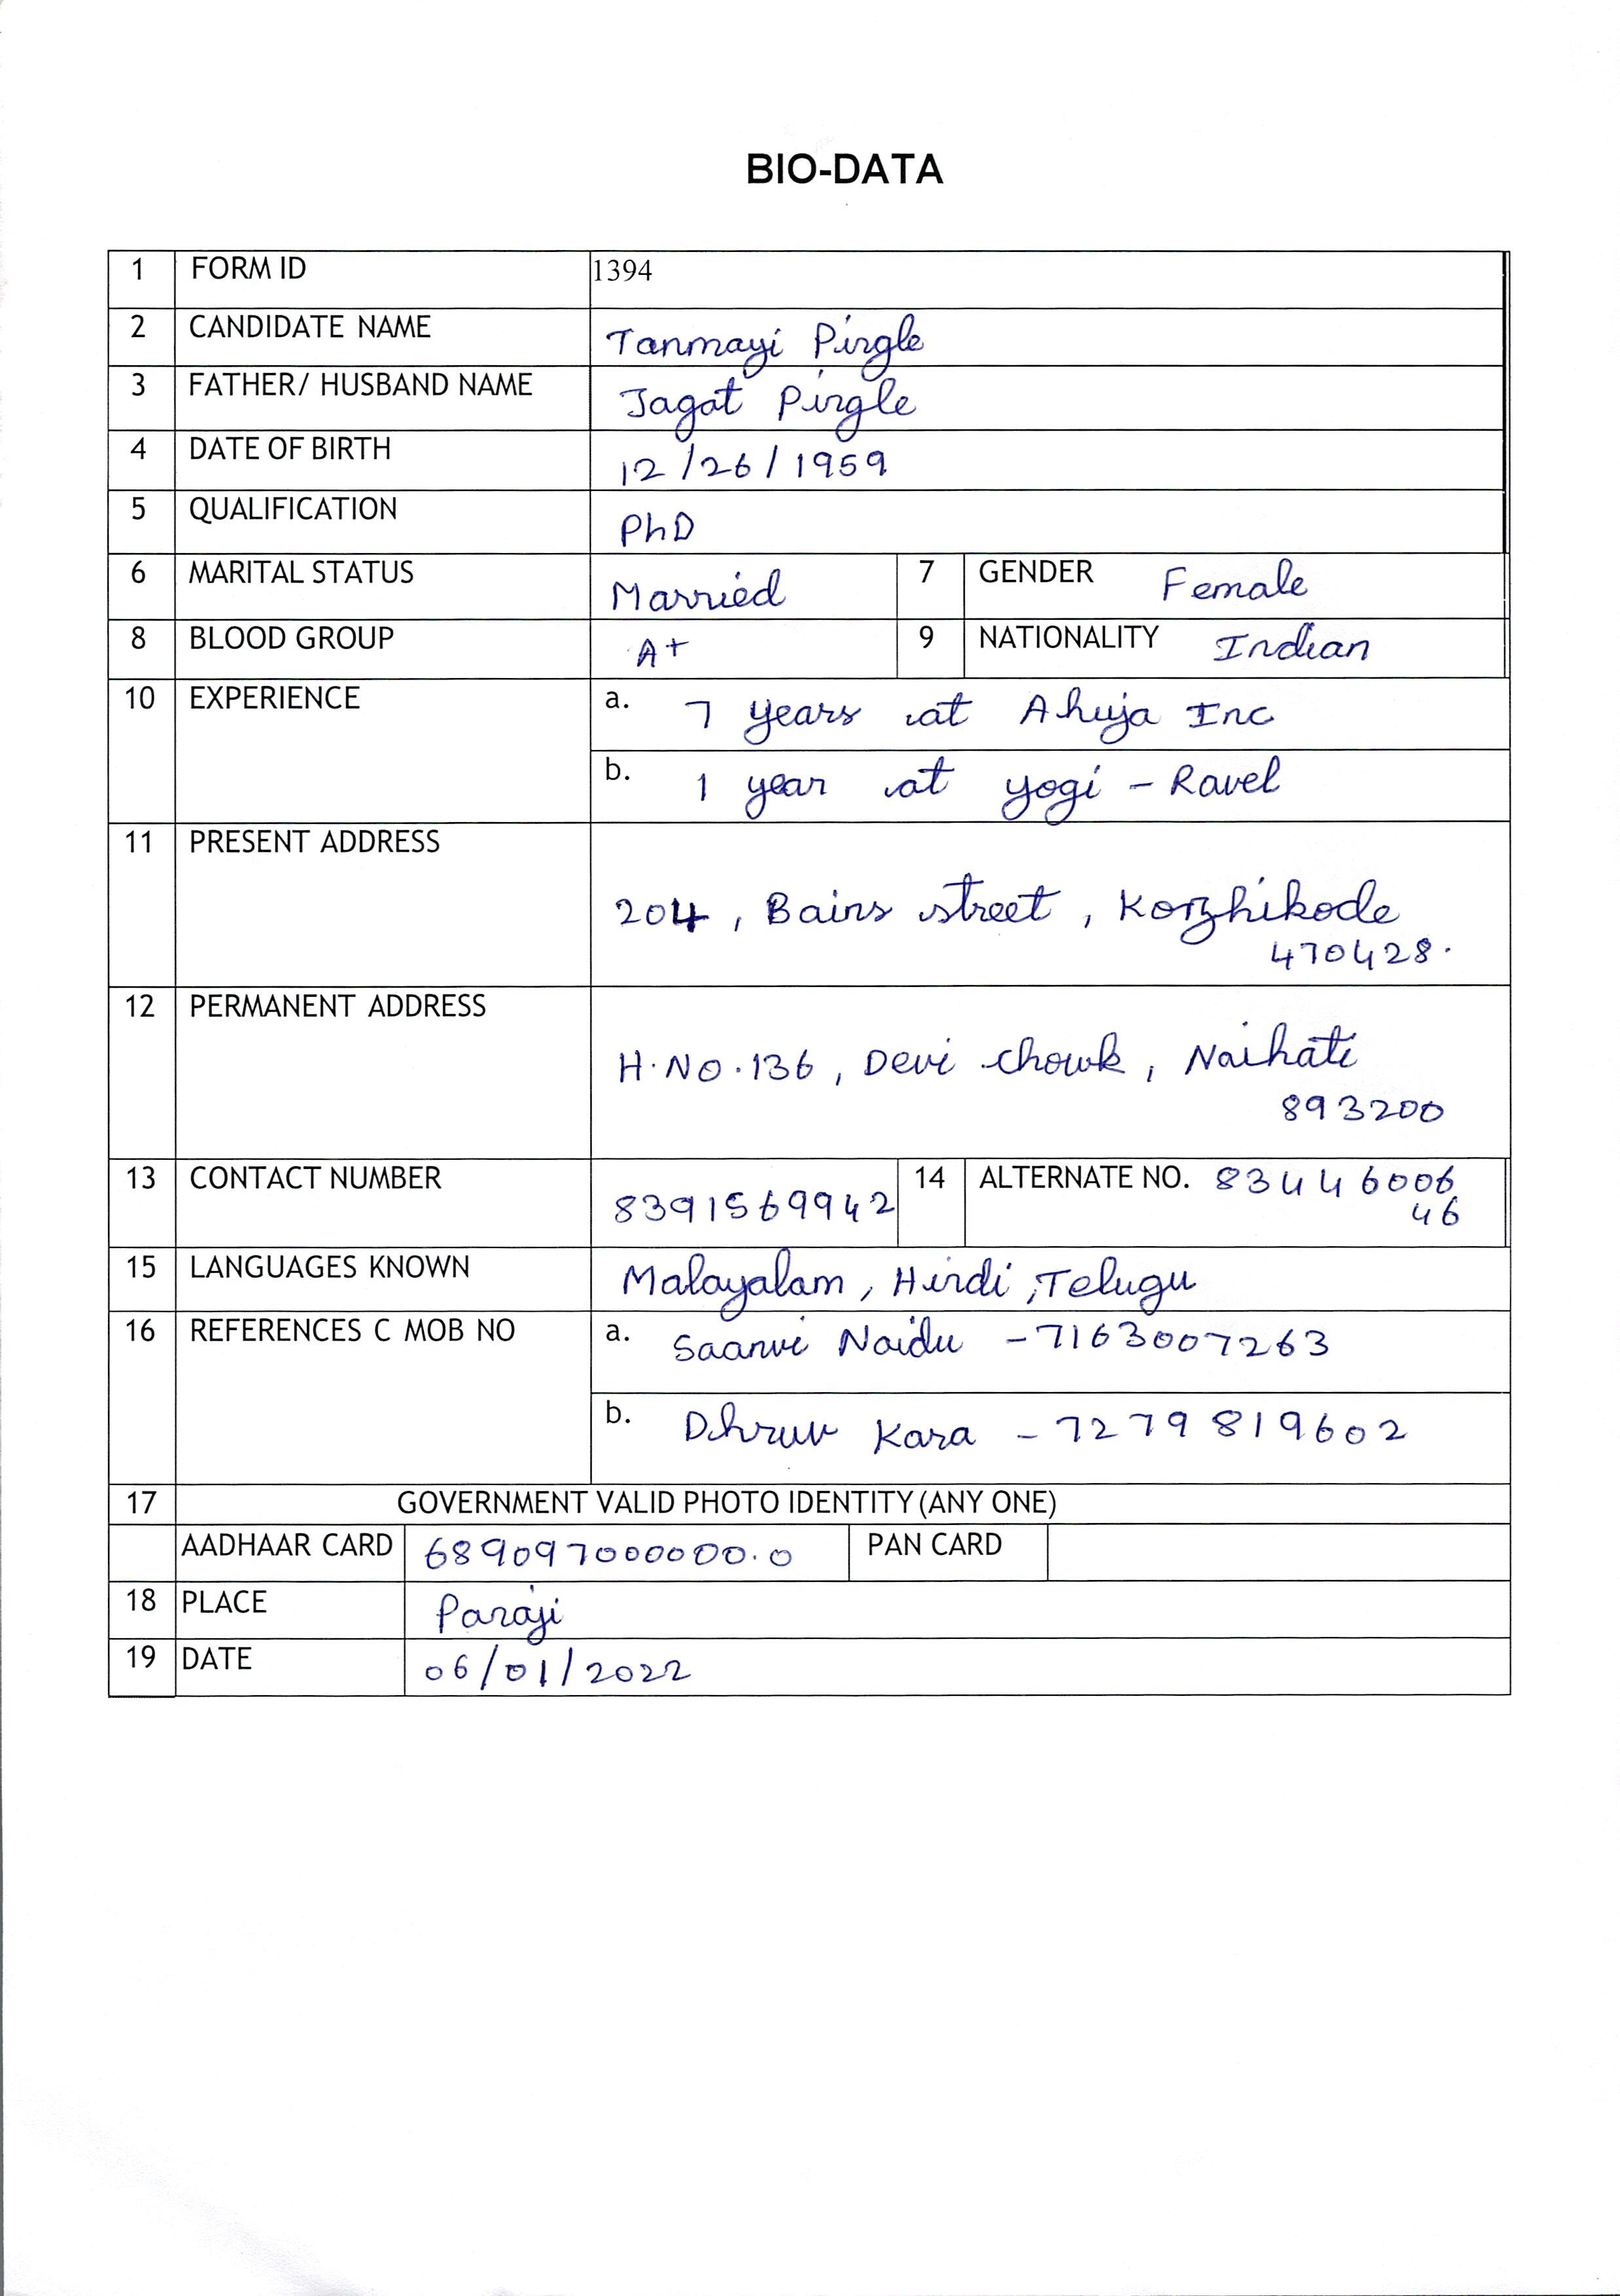 BIO-DATA
1 FORM ID 1394
2 CANDIDATE NAME Tanmayi Pingle
3 FATHER/ HUSBAND NAME Jagat Pingle
4 DATE OF BIRTH 12/26/1959
5 QUALIFICATION PhD
6 MARITAL STATUS Married 7 GENDER Female
8 BLOOD GROUP A+ 9 NATIONALITY Indian
10 EXPERIENCE a. 7 years at Ahuja Inc
b. 1 year at yogi - Ravel
11 PRESENT ADDRESS
204, Bains street, Kozhikode
470428.
12 PERMANENT ADDRESS
H.NO.136, Devi chowk, Naihati
893200
13 CONTACT NUMBER 8391569942 14 ALTERNATE NO. 83446006
46
15 LANGUAGES KNOWN Malayalam, Hindi, Telugu
16 REFERENCES C MOB NO a. Saanvi Naidu - 7163007263
b. Dhruv Kara - 7279819602
17 GOVERNMENT VALID PHOTO IDENTITY (ANY ONE)
AADHAAR CARD 689097000000.0 PAN CARD
18 PLACE Panaji
19 DATE 06/01/2022